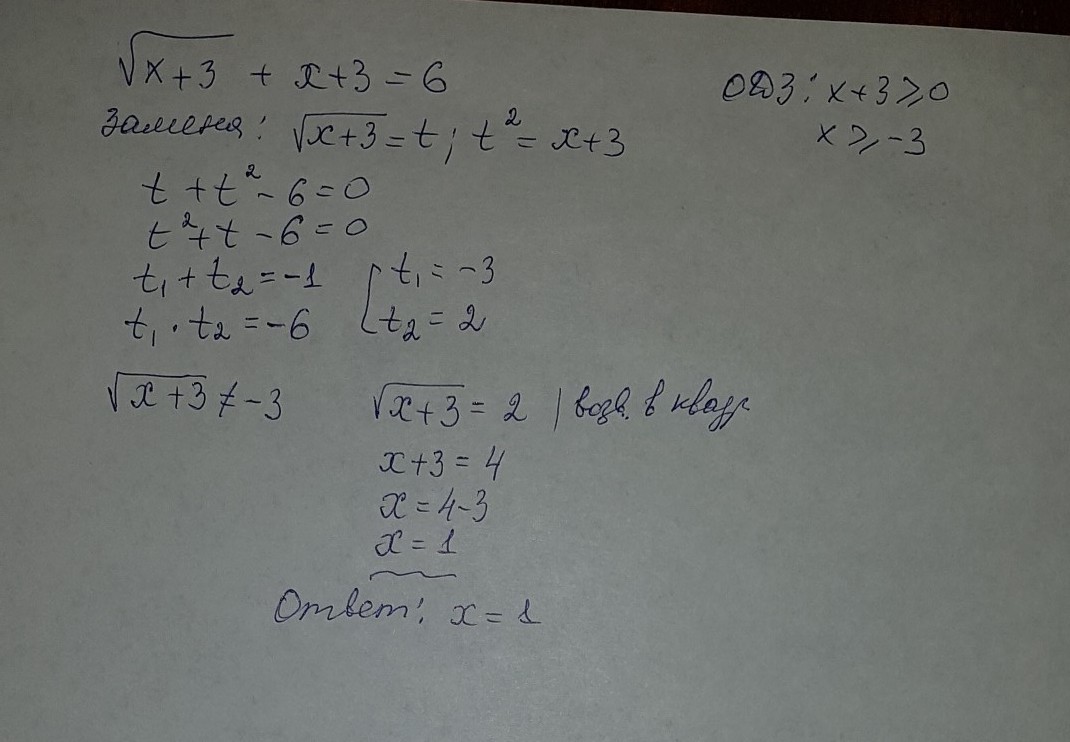 √x+3 + x+3 = 6
ОДЗ: x+3 ⩾ 0
x ⩾ -3
Замена: √x+3 = t; t² = x+3
t + t² - 6 = 0
t² + t - 6 = 0
t₁ + t₂ = -1 [ t₁ = -3
t₁ · t₂ = -6 t₂ = 2
√x+3 ≠ -3 √x+3 = 2 | возв. в квадр
x+3 = 4
x = 4-3
x = 1
Ответ: x = 1